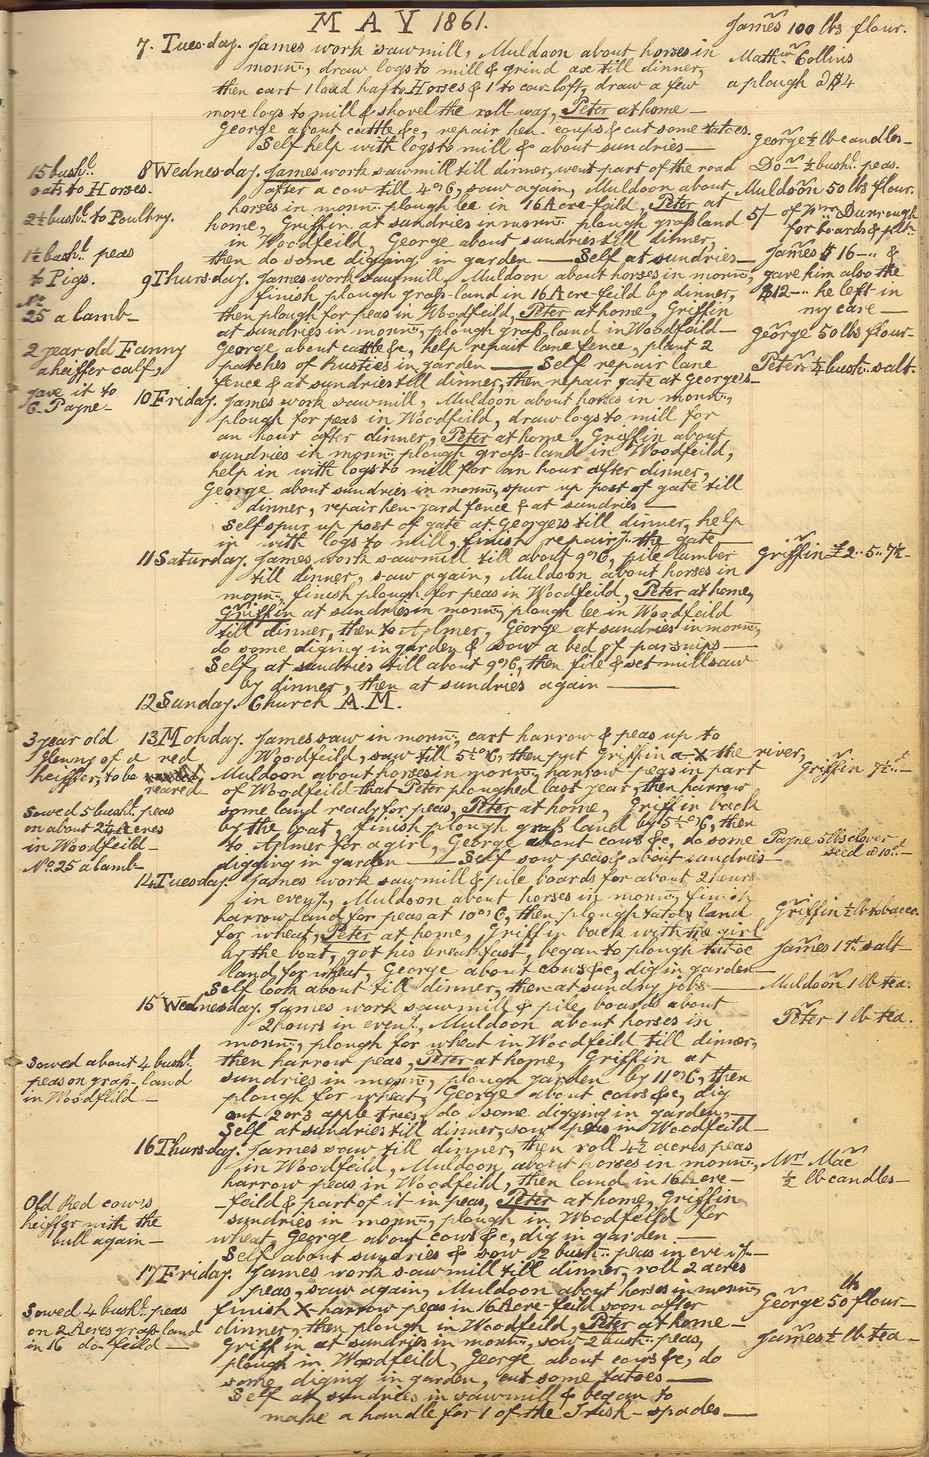 MAY 1861.
James 100 lbs flour.
7. Tuesday. James work sawmill, Muldoon about horses in
mornⁿ:, draw logs to mill & grind ax till dinner,
then cart 1 load hay to Horses & 1 to cow loft, draw a few
more logs to mill & shovel the roll way, Peter at home —
George about cattle &c, repair hen coups & cut some tatoes.
Self help with logs to mill & about sundries —
Mathw Collins
a plough @ $4
George ½ lb candles —
15 bushl.
oats to Horses.
2½ bushl. to Poultry.
1½ bushl. peas
to Pigs.
No
25 a lamb —
2 year old Fanny
a heiffer calf,
gave it to
C. Payne —
8 Wednesday. James work sawmill till dinner, went part of the road
after a cow till 4 o'C, saw again, Muldoon about
horses in mornⁿ: plough lee in 16 Acre-feild, Peter at
home, Griffin at sundries in mornⁿ: plough grass land
in Woodfeild, George about sundries till dinner,
then do some digging in garden — Self at sundries —
Do ½ bushl. peas.
Muldoon 50 lbs flour.
5/- of Wm Durrough
for boards & pltn
James $16 -.. &
gave him also the
$12 -.. he left in
my care —
9 Thursday. James work sawmill, Muldoon about horses in mornⁿ:,
finish plough grass-land in 16 Acre-feild by dinner,
then plough for peas in Woodfeild, Peter at home, Griffin
at sundries in mornⁿ:, plough grass-land in Woodfeild —
George about cattle &c, help repair lane fence, plant 2
patches of Rusties in garden — Self repair lane
fence & at sundries till dinner, then repair gate at George's —
George 50 lbs flour —
Peter ½ bush.. salt.
10 Friday. James work sawmill, Muldoon about horses in mornⁿ:,
plough for peas in Woodfeild, draw logs to mill for
an hour after dinner, Peter at home, Griffin about
sundries in mornⁿ: plough grass-land in Woodfeild,
help in with logs to mill for an hour after dinner,
George about sundries in mornⁿ:, spur up post of gate till
dinner, repair hen-yard fence & at sundries —
Self spur up post of gate at George's till dinner, help
in with logs to mill, finish repairg. the gate —
11 Saturday. James work sawmill till about 9 o'C, pile lumber
till dinner, saw again, Muldoon about horses in
mornⁿ:, finish plough for peas in Woodfeild, Peter at home,
Griffin at sundries in mornⁿ:, plough lee in Woodfeild
till dinner, then to Aylmer, George at sundries in mornⁿ:,
do some diging in garden & sow a bed of parsnips —
Self at sundries till about 9 o'C, then file & set millsaw
by dinner, then at sundries again —
Griffin £2.. 5.. 7½ —
12 Sunday. Church A.M.
3 year old
Jenny of a red
heiffer, to be
reared —
Sowed 5 bushl. peas
on about 2¼ Acres
in Woodfeild —
No. 25 a lamb
13 Monday. James saw in mornⁿ:, cart harrow & peas up to
Woodfeild, saw till 5½ o'C, then put Griffin a-X the river,
Muldoon about horses in mornⁿ:, harrow peas in part
of Woodfeild that Peter ploughed last year, then harrow
some land ready for peas, Peter at home, Griffin back
by the boat, finish plough grass land by 5½ o'C, then
to Aylmer for a girl, George about cows &c, do some
digging in garden — Self sow peas & about sundries —
Griffin 7½d —
Payne 5 lbs clover
seed @ 10d —
14 Tuesday. James work sawmill & pile boards for about 2 hours
in eveng., Muldoon about horses in mornⁿ:, finish
harrow land for peas at 10 o'C, then plough tatoe land
for wheat, Peter at home, Griffin back with the girl
by the boat, got his breakfast, began to plough tatoe
land for wheat, George about cows &c, dig in garden —
Self look about till dinner, then at sundry jobs —
Griffin ½ lb tobacco.
James 1 qt salt —
Muldoon 1 lb tea.
15 Wednesday. James work sawmill & pile boards about
2 hours in eveng., Muldoon about horses in
mornⁿ:, plough for wheat in Woodfeild till dinner,
then harrow peas, Peter at home, Griffin at
sundries in mornⁿ:, plough garden by 11 o'C, then
plough for wheat, George about cows &c, dig
out 2 or 3 apple trees, do some digging in garden, —
Self at sundries till dinner, sow peas in Woodfeild —
Peter 1 lb tea.
Sowed about 4 bushl.
peas on grass-land
in Woodfeild —
16 Thursday. James saw till dinner, then roll 4½ acres peas
in Woodfeild, Muldoon about horses in mornⁿ:,
harrow peas in Woodfeild, then land in 16 Acre-
-feild & part of it in peas, Peter at home, Griffin
sundries in mornⁿ:, plough in Woodfeild for
wheat, George about cows &c, dig in garden. —
Self about sundries & sow 2 bush.. peas in eveng. —
Mrs Mac
½ lb candles —
Old Red cow's
heiffer with the
bull again —
17 Friday. James work sawmill till dinner, roll 2 acres
peas, saw again, Muldoon about horses in mornⁿ:,
finish X-harrow peas in 16 Acre-feild soon after
dinner, then plough in Woodfeild, Peter at home —
Griffin at sundries in mornⁿ:, sow 2 bush.. peas,
plough in Woodfeild, George about cows &c, do
some diging in garden, cut some tatoes —
Self at sundries in sawmill & began to
make a handle for 1 of the Irish-spades —
George 50 lbs flour —
James ½ lb tea —
Sowed 4 bushl. peas
on 2 Acres grass-land
in 16 do feild —